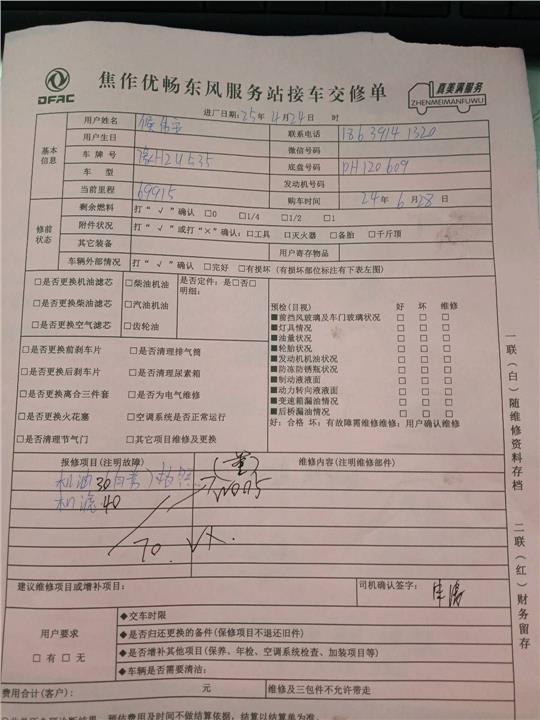 DFAC
焦作优畅东风服务站接车交修单
真美满服务
ZHENMEIMANFUWU
进厂日期：25年4月24日 时
用户姓名 联系电话 186 3914 1320
用户生日 微信号码
基本信息
车牌号 豫H24535 底盘号码 PH120609
车型 发动机号码
当前里程 69915 购车时间 24年6月28日
修前状态
剩余燃料 打“√”确认 □0 □1/4 □1/2 □1
附件状况 打“√”或打“×”确认：□工具 □灭火器 □备胎 □千斤顶
其它装备 用户寄存物品
车辆外部情况 打“√”确认 □完好 □有损坏（有损坏部位标注有下表左图）
□是否更换机油滤芯 □柴油机油 是否定件：是□否□
明细：
□是否更换柴油滤芯 □汽油机油
□是否更换空气滤芯 □齿轮油
□是否更换前刹车片 □是否清理排气筒
□是否更换后刹车片 □是否清理尿素箱
□是否更换离合三件套 □是否为电气维修
□是否更换火花塞 □空调系统是否正常运行
□是否清理节气门 □其它项目维修及更换
预检（目视） 好 坏 维修
■前挡风玻璃及车门玻璃状况 □ □ □
■灯具情况 □ □ □
■油量状况 □ □ □
■轮胎状况 □ □ □
■发动机机油状况 □ □ □
■防冻防锈瓶状况 □ □ □
■制动液液面 □ □ □
■动力转向液液面 □ □ □
■变速箱漏油情况 □ □ □
■后桥漏油情况 □ □ □
好：合格 坏：有故障需维修维修：用户确认维修
报修项目（注明故障） 维修内容（注明维修部件）
机油30（自带）
机滤40
70.
建议维修项目或增补项目： 司机确认签字：
用户要求
□有 □无
◆交车时限
◆是否归还更换的备件（保修项目不退还旧件）
◆是否增补其他项目（保养、年检、空调系统检查、加装项目等）
◆车辆是否需要清洁：
费用合计（客户）： 元 维修及三包件不允许带走
预估费用及时间不做结算依据；结算以结算单为准。
一联（白）随维修资料存档
二联（红）财务留存